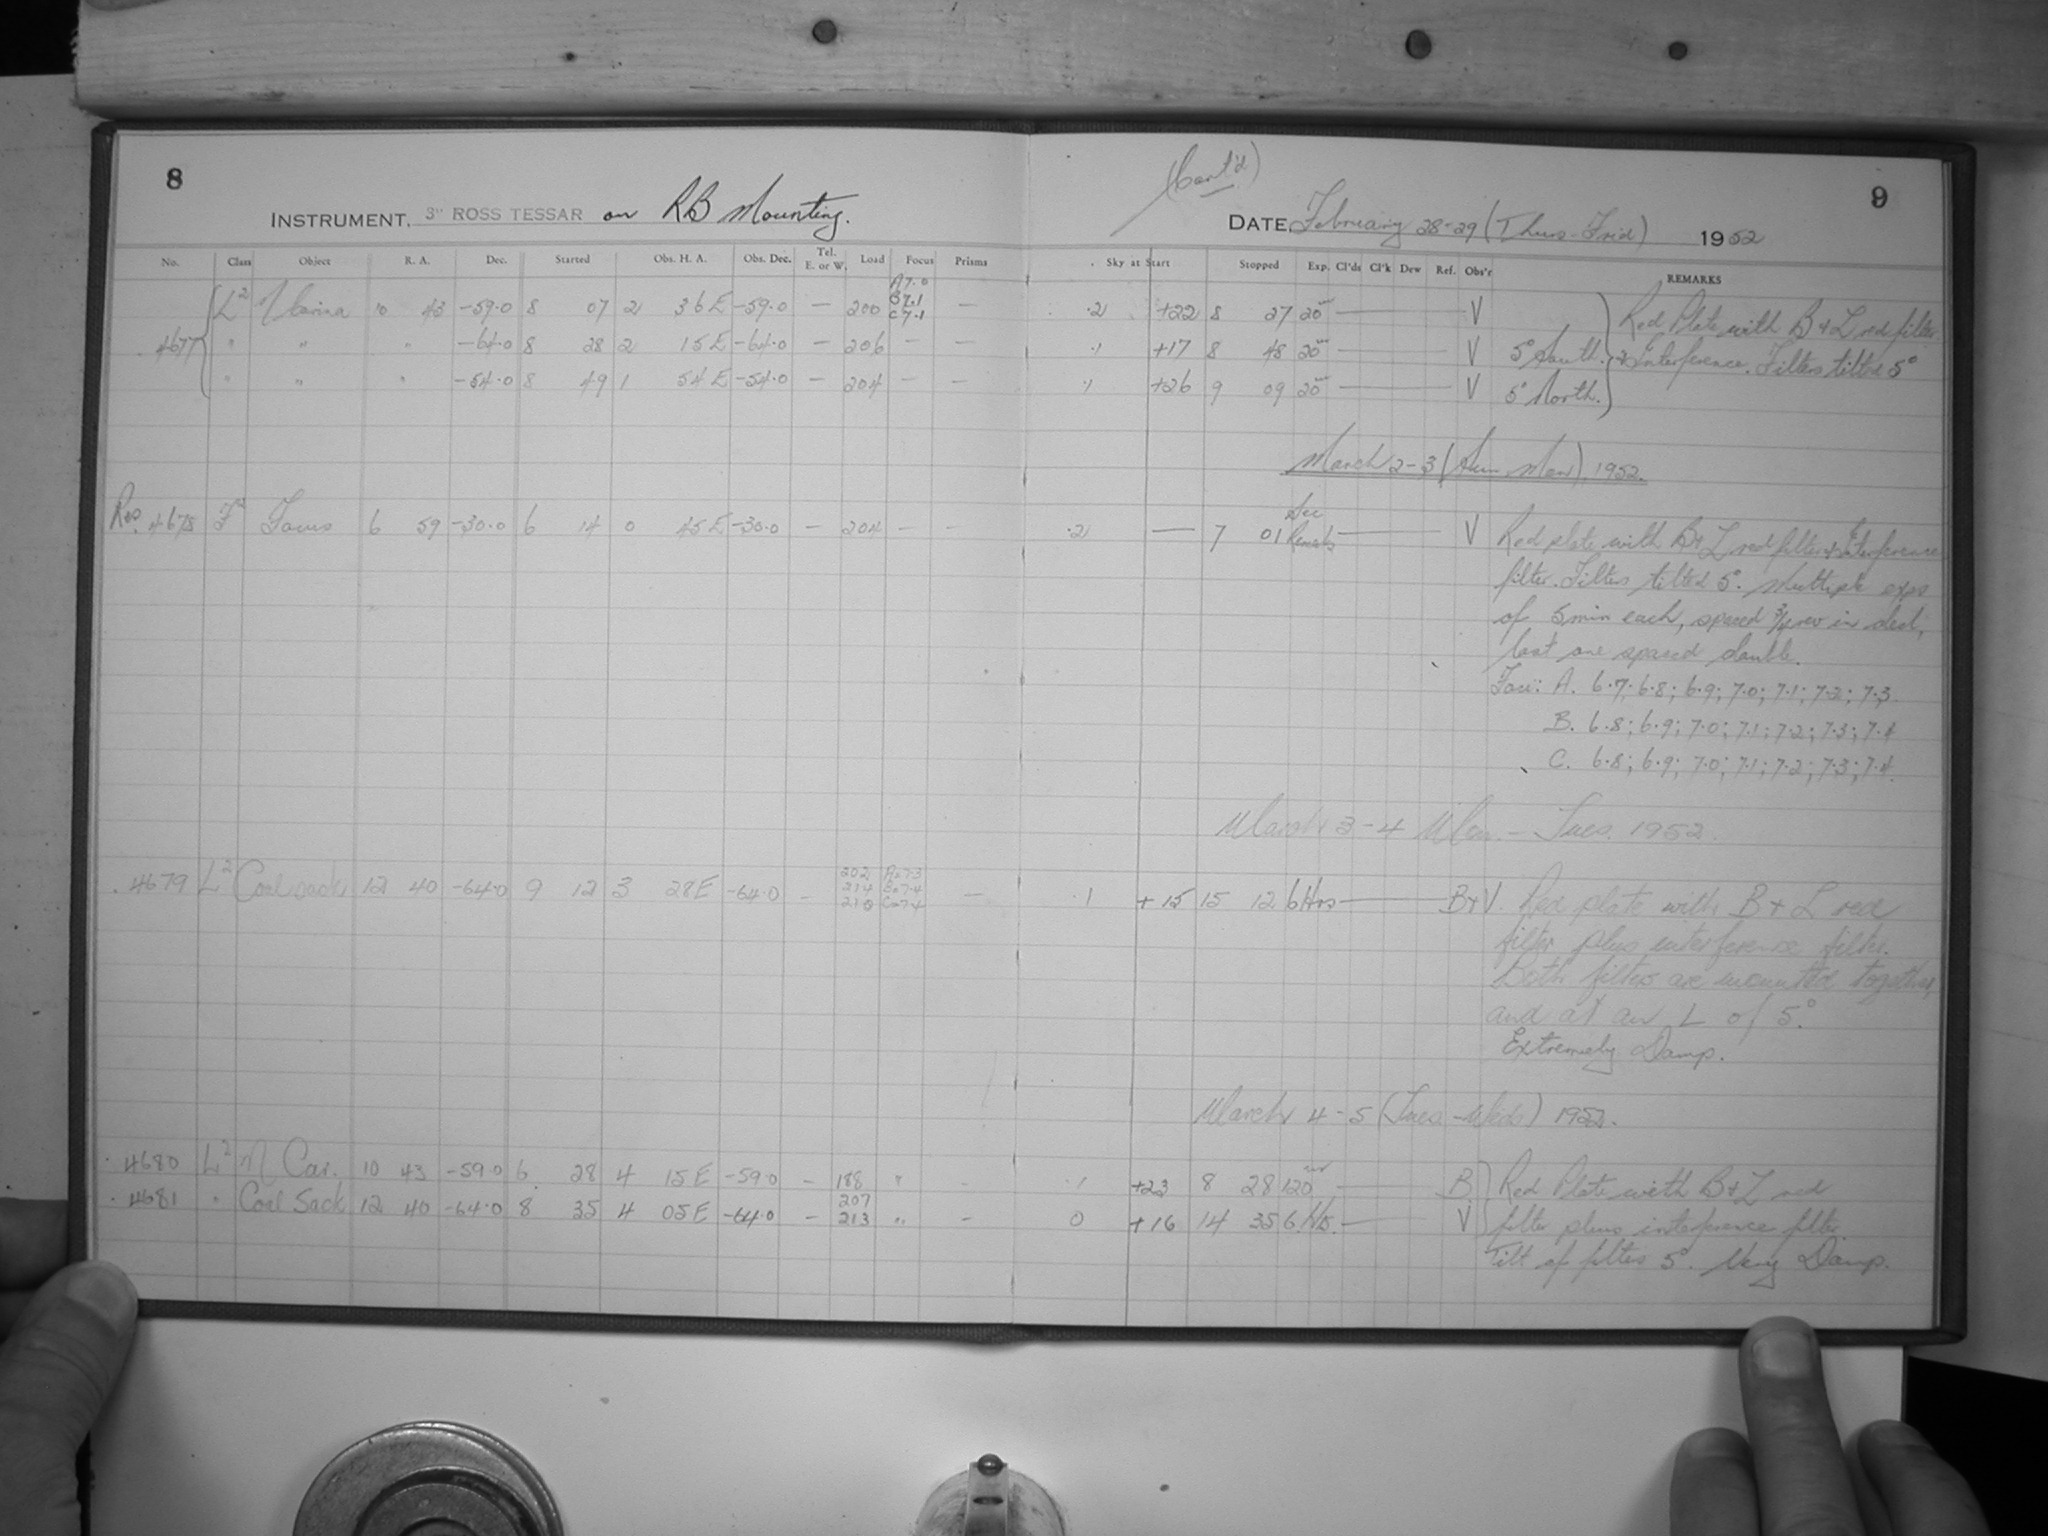 8
INSTRUMENT, 3" ROSS TESSAR on RB Mounting.
No. Class Object R. A. Dec. Started Obs. H. A. Obs. Dec. Tel. E. or W. Load Focus Prisms
4677 L² η Carina 10 43 -59.0 8 07 2 36 E -59.0 — 200 A7.0 B7.1 C7.1 —
" " " -64.0 8 28 2 15 E -64.0 — 206 — —
" " " -54.0 8 49 1 54 E -54.0 — 204 — —
Res. 4678 F² Focus 6 59 -30.0 6 14 0 45 E -30.0 — 204 — —
4679 L² Coal sack 12 40 -64.0 9 12 3 28 E -64.0 - 202 214 210 A=7.3 B=7.4 C=7.4 —
4680 L² η Car. 10 43 -59.0 6 28 4 15 E -59.0 - 188 " -
4681 " Coal Sack 12 40 -64.0 8 35 4 05 E -64.0 - 207 213 " -
(Cont'd)
9
DATE, February 28-29 (Thurs-Frid) 1952
Sky at Start Stopped Exp. Cl'ds Cl'k Dew Ref. Obs'r REMARKS
.2 +22 8 27 20ᵐ — V Red Plate with B & L red filter
.1 +17 8 48 20ᵐ — V 5° South. & Interference. Filters tilted 5°
.1 +26 9 09 20ᵐ — V 5° North.
March 2-3 (Sun. Mon). 1952.
.2 — 7 01 See Remark — V Red plate with B & L red filter & Interference
filter. Filters tilted 5°. Multiple exps
of 5 min each, spaced ¾ rev in decl,
last one spaced double.
Foci: A. 6.7; 6.8; 6.9; 7.0; 7.1; 7.2; 7.3
B. 6.8; 6.9; 7.0; 7.1; 7.2; 7.3; 7.4
C. 6.8; 6.9; 7.0; 7.1; 7.2; 7.3; 7.4.
March 3-4 Mon. - Tues. 1952.
.1 +15 15 12 6Hrs — B+V. Red plate with B + L red
filter plus interference filter.
Both filters are mounted together,
and at an ∠ of 5°.
Extremely Damp.
March 4-5 (Tues. - Weds) 1952.
.1 +23 8 28 120ᵐ — B. Red Plate with B & L red
0 +16 14 35 6 Hrs. — V filter plus interference filter
Tilt of filter 5°. Very Damp.